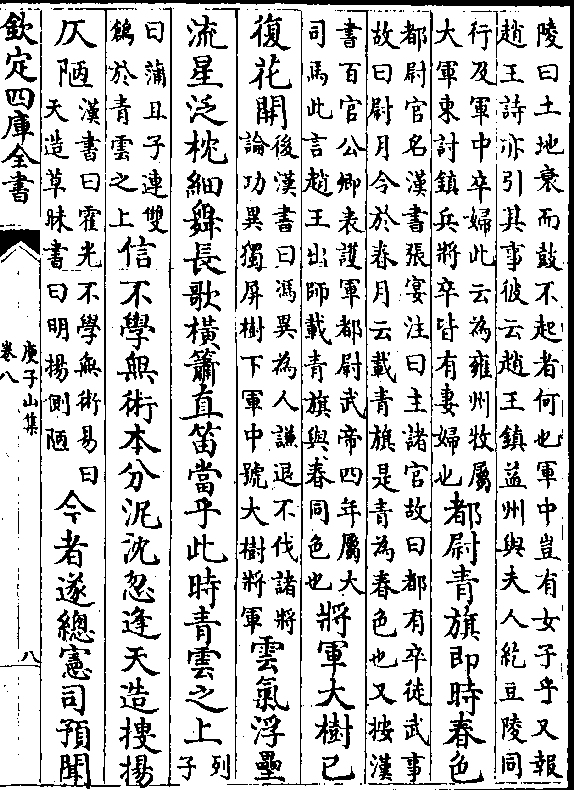 陵曰土地衰而鼓不起者何也軍中豈有女子乎又報
趙王詩亦引其事彼云趙王鎮益州與夫人紇豆陵同
行及軍中卒婦此云為雍州牧屬
大軍東討鎮兵將卒皆有妻婦也
都尉青旗即時春色
都尉官名漢書張宴注曰主諸官故曰都有卒徒武事
故曰尉月令於春月云載青旗是青為春色也又按漢
書百官公卿表護軍都尉武帝四年屬大
司馬此言趙王出師載青旗與春同色也
將軍大樹已
復花開
後漢書曰馮異為人謙退不伐諸將
論功異獨屏樹下軍中號大樹將軍
雲氣浮壘
流星泛枕細舞長歌橫簫直笛當乎此時青雲之上
列子
曰蒲且子連雙
鶬於青雲之上
信不學無術本分泥沈忽逢天造搜揚
仄陋
漢書曰霍光不學無術易曰
天造草昧書曰明揚側陋
今者遂總憲司預聞
欽定四庫全書
庾子山集
卷八
八